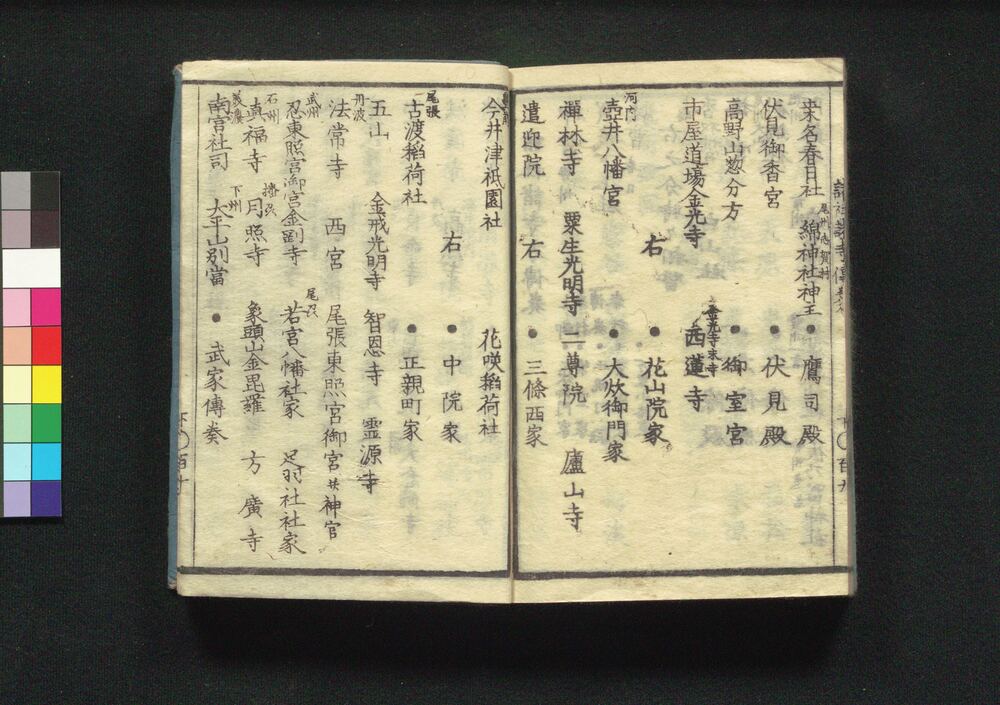 来名春日社 尾州志賀村 綿神社神主 ●鷹司殿
伏見御香宮 ●伏見殿
高野山惣分方 ●御室宮
市屋道場金光寺 金光寺末寺 西蓮寺
右 ●花山院家
河内 壺井八幡宮 ●大炊御門家
禅林寺 粟生光明寺 二尊院 廬山寺
遣迎院 右 ●三條西家
今井津祇園社 花咲稲荷社
右 ●中院家
尾張 古渡稲荷社 ●正親町家
五山 金戒光明寺 智恩寺 霊源寺
丹波 法常寺 西宮 尾張東照宮御宮并神官
武州 忍東照宮御宮金剛寺 尾州 若宮八幡社家 足羽社社家
石州 真福寺 播州 月照寺 象頭山金毘羅 方廣寺
美濃 南宮社司 下州 太平山別當 ●武家傳奏